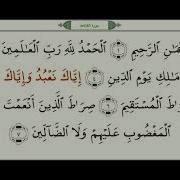 سورة الفاتحة
ـمَـٰنِ ٱلرَّحِيمِ ١ ٱلْحَمْدُ لِلَّهِ رَبِّ ٱلْعَـٰلَمِينَ
مَـٰلِكِ يَوْمِ ٱلدِّينِ ٤ إِيَّاكَ نَعْبُدُ وَإِيَّاكَ
ـرَٰطَ ٱلْمُسْتَقِيمَ ٦ صِرَٰطَ ٱلَّذِينَ أَنْعَمْتَ
ٱلْمَغْضُوبِ عَلَيْهِمْ وَلَا ٱلضَّآلِّينَ ٧